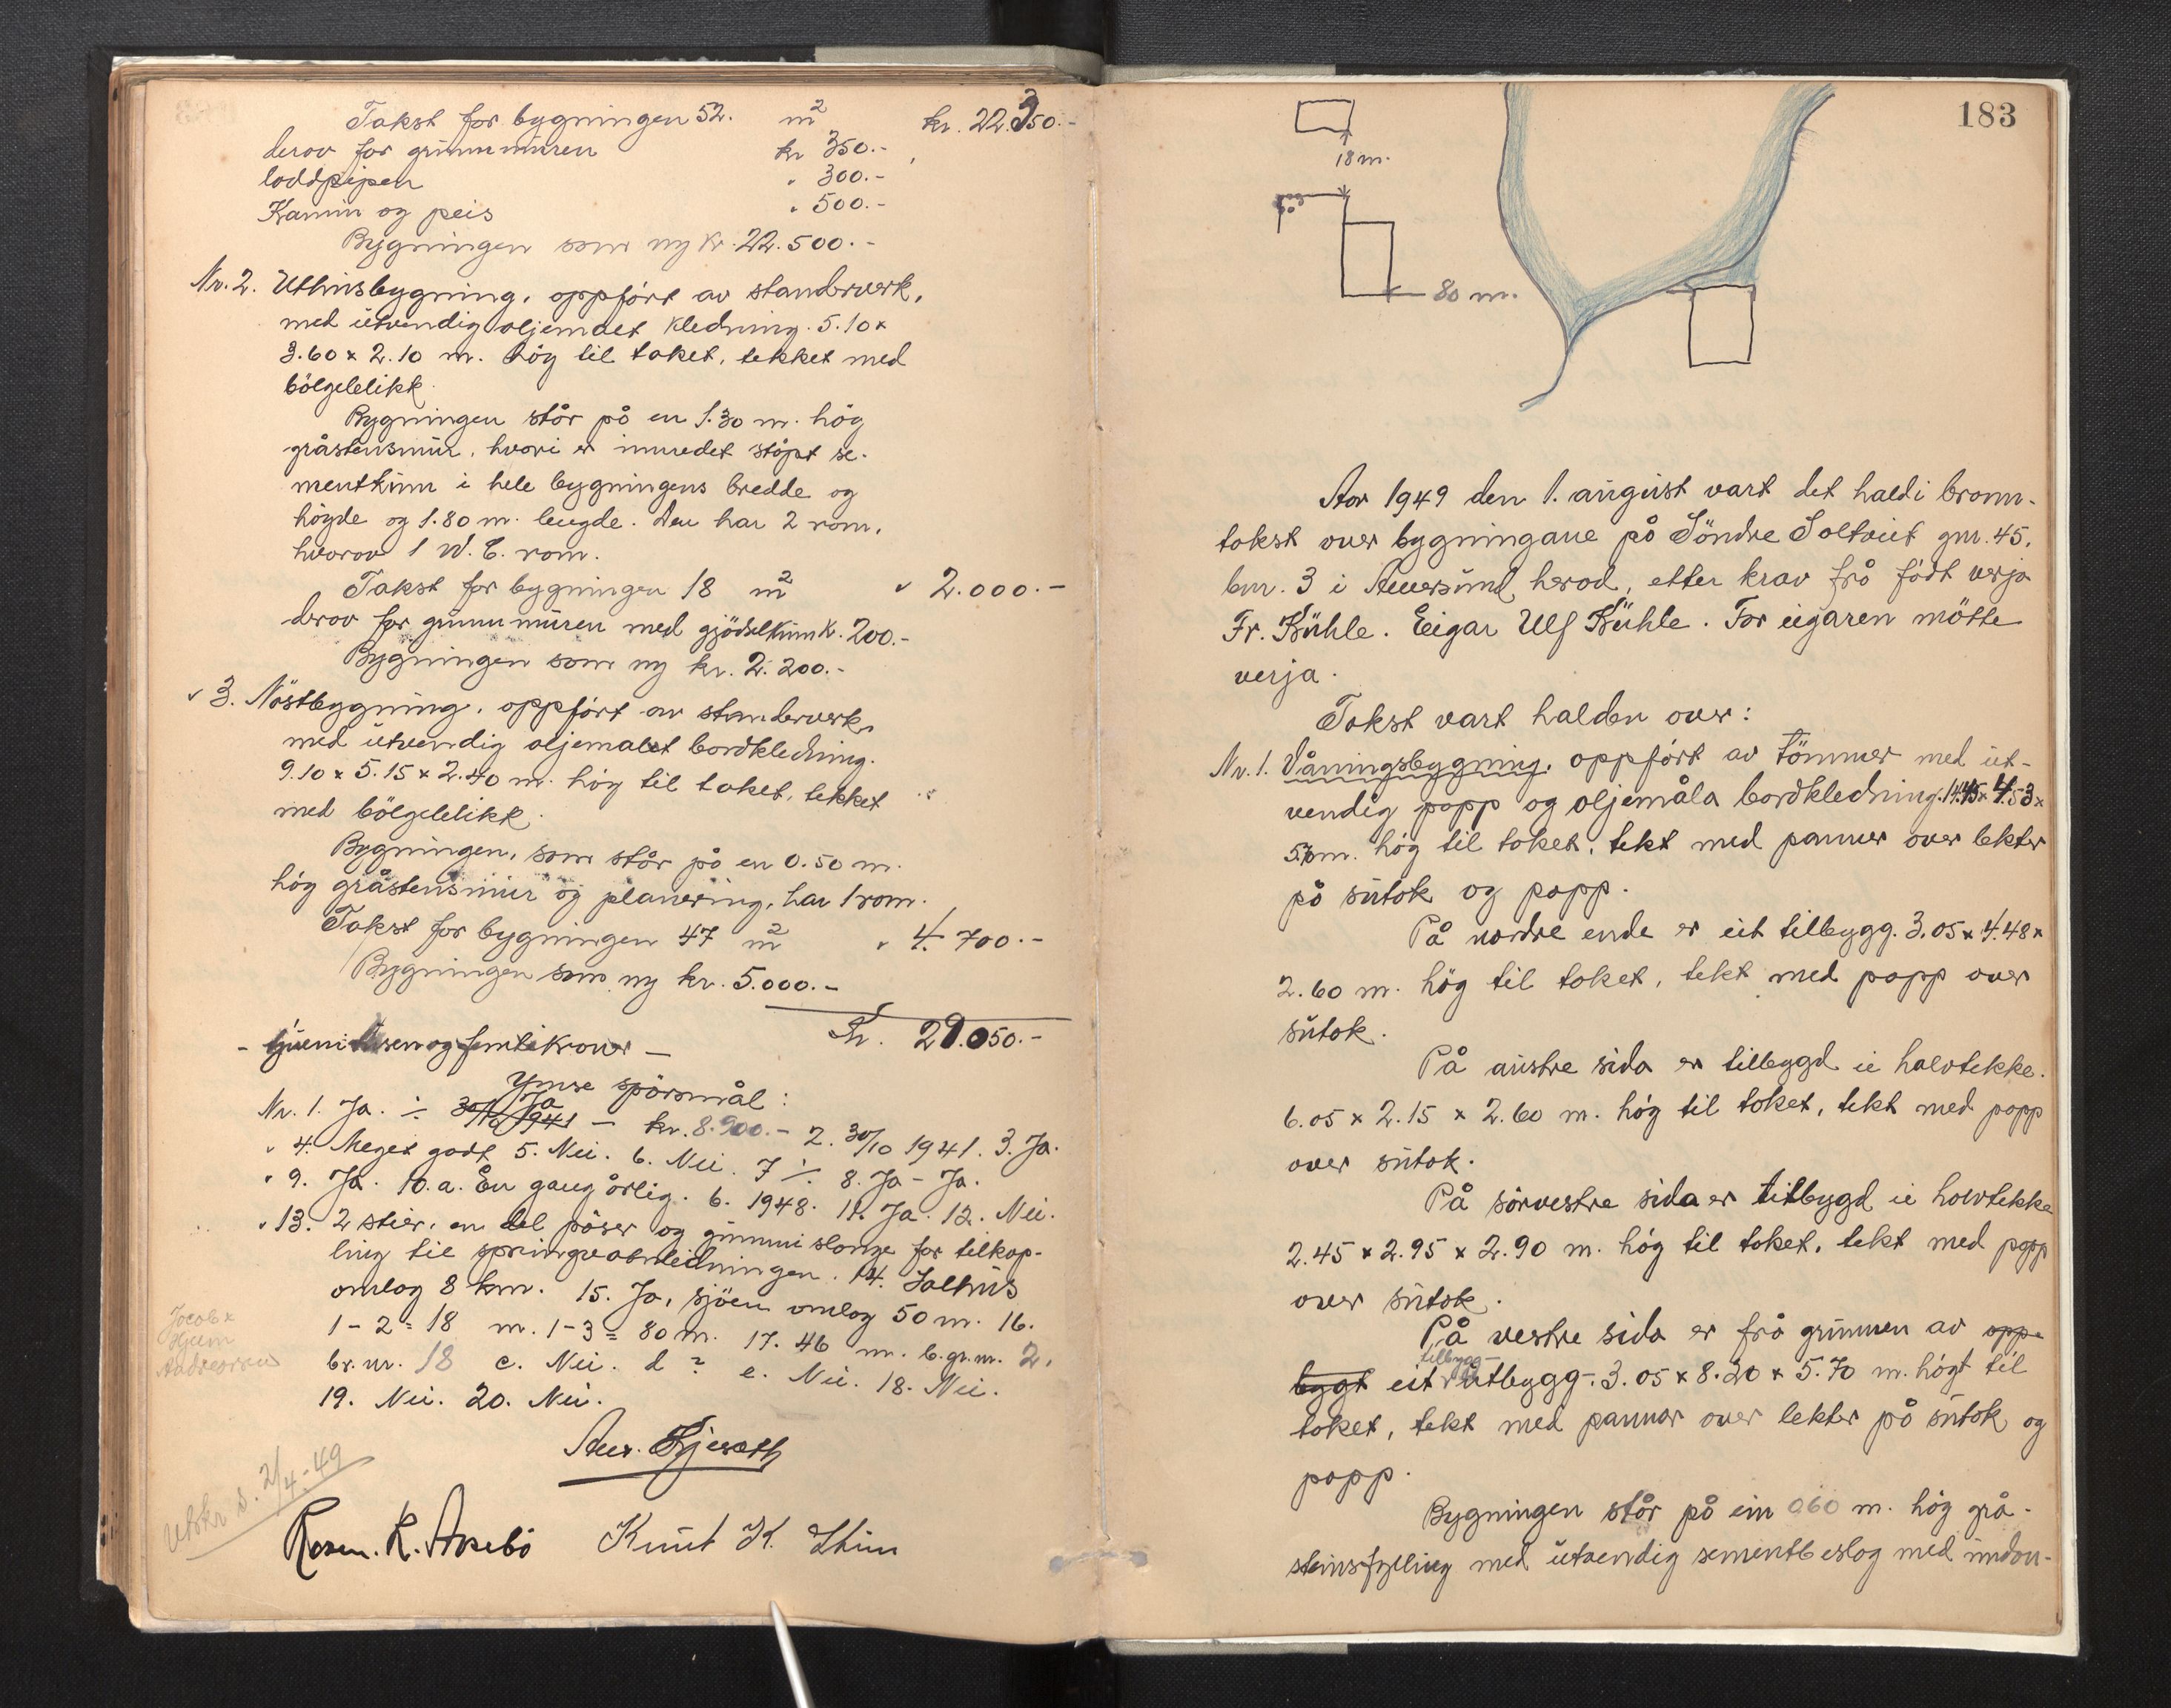 Takst for bygningen 52. m² kr. 22.350.-
derav for grunnmuren kr 350.-
loddpipen " 300.-
Kamin og peis " 500.-
Bygningen som ny kr. 22.500.-
Nr. 2. Uthusbygning, oppført av standerverk,
med utvendig oljemalt kledning. 5.10 x
3.60 x 2.10 m. høg til taket, tekket med
bölgeblikk.
Bygningen står på en 1.30 m. høg
gråstensmur, hvori er innredet støpt se-
mentkinn i hele bygningens bredde og
högde og 1.80 m. lengde. Den har 2 rom,
hvorav 1 W.C. rom.
Takst for bygningen 18 m² " 2.000.-
derav for grunnmuren med gjödselkinn k. 200.-
Bygningen som ny kr. 2.200.-
" 3. Nöstbygning, oppfört av standerverk,
med utvendig oljemalet bordkledning.
9.10 x 5.15 x 2.40 m. høg til taket, tekket
med bölgeblikk.
Bygningen, som står på en 0.50 m.
hög gråstensmur og planering, har 1 rom.
Takst for bygningen 47 m² " 4.700.-
Bygningen som ny kr. 5.000.-
Kr. 29.050.-
- tjueni tusen og femti kroner —
Ymse spörsmål:
Nr. 1. Ja. ÷ 30/10 1941 Ja — kr. 8.900.- 2. 30/10 1941. 3. Ja.
" 4. Meget godt 5. Nei. 6. Nei. 7 ÷ 8. Ja - Ja.
" 9. Ja. 10. a. En gang årlig. b. 1948. 11. Ja. 12. Nei.
" 13. 2 stier, en del pöser og gummislange for tilkop-
ling til springvatnledningen. 14. Salhus
omlag 8 km. 15. Ja, sjöen omlag 50 m. 16.
1-2 = 18 m. 1-3 = 80 m. 17. 46 m. b. gr. nr. 2,
br. nr. 18 c. Nei. d ? e. Nei. 18. Nei.
19. Nei. 20. Nei.
Jacob x
Hjelm
Andreassen
Utskr. d. 2/4-49
Knut K.
183
18 m.
80 m.
Aar 1949 den 1. august vart det haldi brann-
takst over bygningane på Söndre Soltveit gnr. 45,
bnr. 3 i Alversund herad, etter krav frå födt verja
Fr. Kühle. Eigar Ulf Kühle. For eigaren mötte
verja.
Takst vart halden over:
Nr. 1. Våningsbygning, oppfört av tömmer med ut-
vendig papp og oljemåla bordkledning. 14.45 x 4.53 x
5.70 m. hög til taket, tekt med panner over lekter
på sutak og papp.
På nordre ende er eit tilbygg. 3.05 x 4.48 x
2.60 m. hög til taket, tekt med papp over
sutak.
På austre sida er tilbygd ei halvtekke.
6.05 x 2.15 x 2.60 m. hög til taket, tekt med papp
over sutak.
På sörvestre sida er tilbygd ei halvtekke
2.45 x 2.95 x 2.90 m. hög til taket, tekt med papp
over sutak.
På vestre sida er frå grunnen av opp-
bygt eit tilbygg- utbygg-. 3.05 x 8.20 x 5.70 m. högt til
taket, tekt med pannar over lekter på sutak og
papp.
Bygningen står på ein 0.60 m. hög grå-
steinsfylling med utvendig sementbeslag med innan-